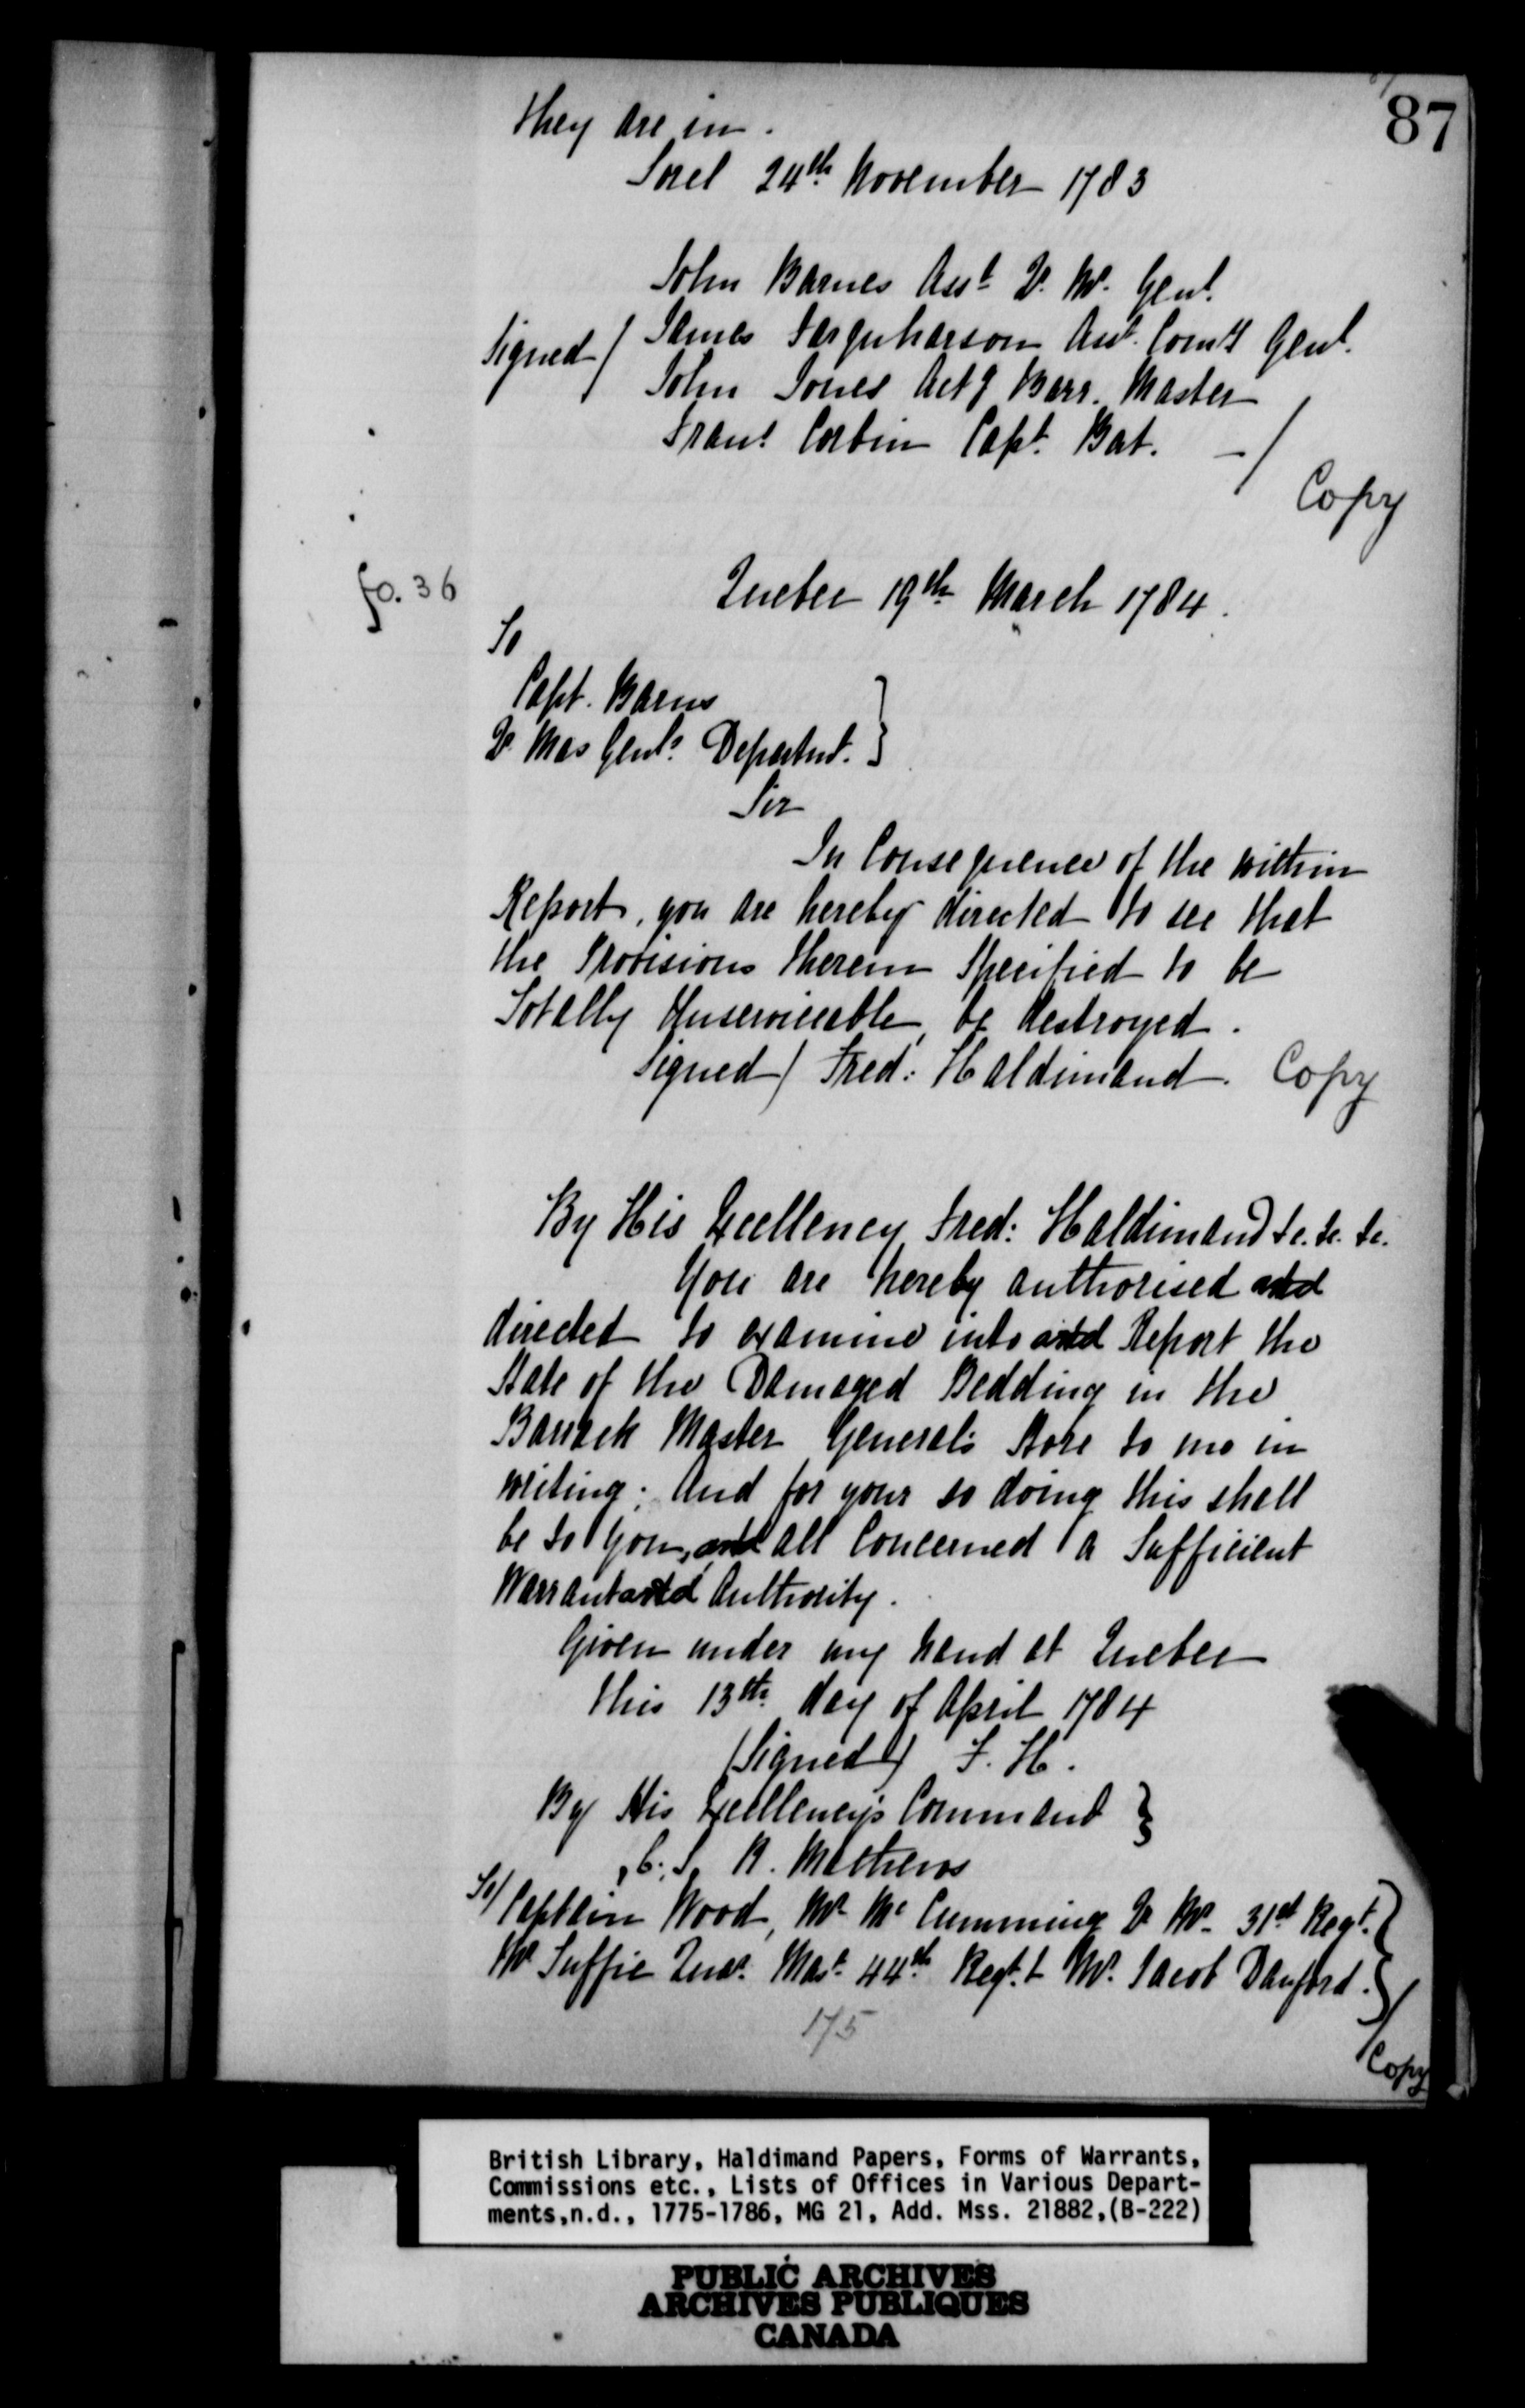 87
they are in.
Sorel 24th November 1783
John Barnes Asst Q. Mr. Genl.
Signed/ James Farquharson Asst. Comy Genl.
John Jones Actg Barr. Master
Frans Corbin Capt. Bat. -/
Copy
fo. 36
Quebec 19th March 1784.
To
Capt. Barns
Q. Mas Genls Departmt. }
Sir
In Consequence of the within
Report, you are hereby directed to see that
the Provisions therein Specified to be
Totally Unserviceable, be destroyed.
Signed/ Fred: Haldimand. Copy
By His Excellency Fred: Haldimand &c. &c. &c.
You are hereby authorised and
directed to examine into and Report the
State of the Damaged Bedding in the
Barrack Master General's Store to me in
writing; And for your so doing this shall
be to you, and all Concerned a Sufficient
Warrant and Authority.
Given under my hand at Quebec
this 13th day of April 1784
(Signed) F. H.
By His Excellency's Command }
R. Mathews
To/ Captain Wood, Mr. Mc Cumming Q Mr. 31st Regt. }
Mr Suffie Quar. Mas. 44th Regt. & Mr. Jacob Danford. }
/Copy
175
British Library, Haldimand Papers, Forms of Warrants,
Commissions etc., Lists of Offices in Various Depart-
ments,n.d., 1775-1786, MG 21, Add. Mss. 21882,(B-222)
PUBLIC ARCHIVES
ARCHIVES PUBLIQUES
CANADA